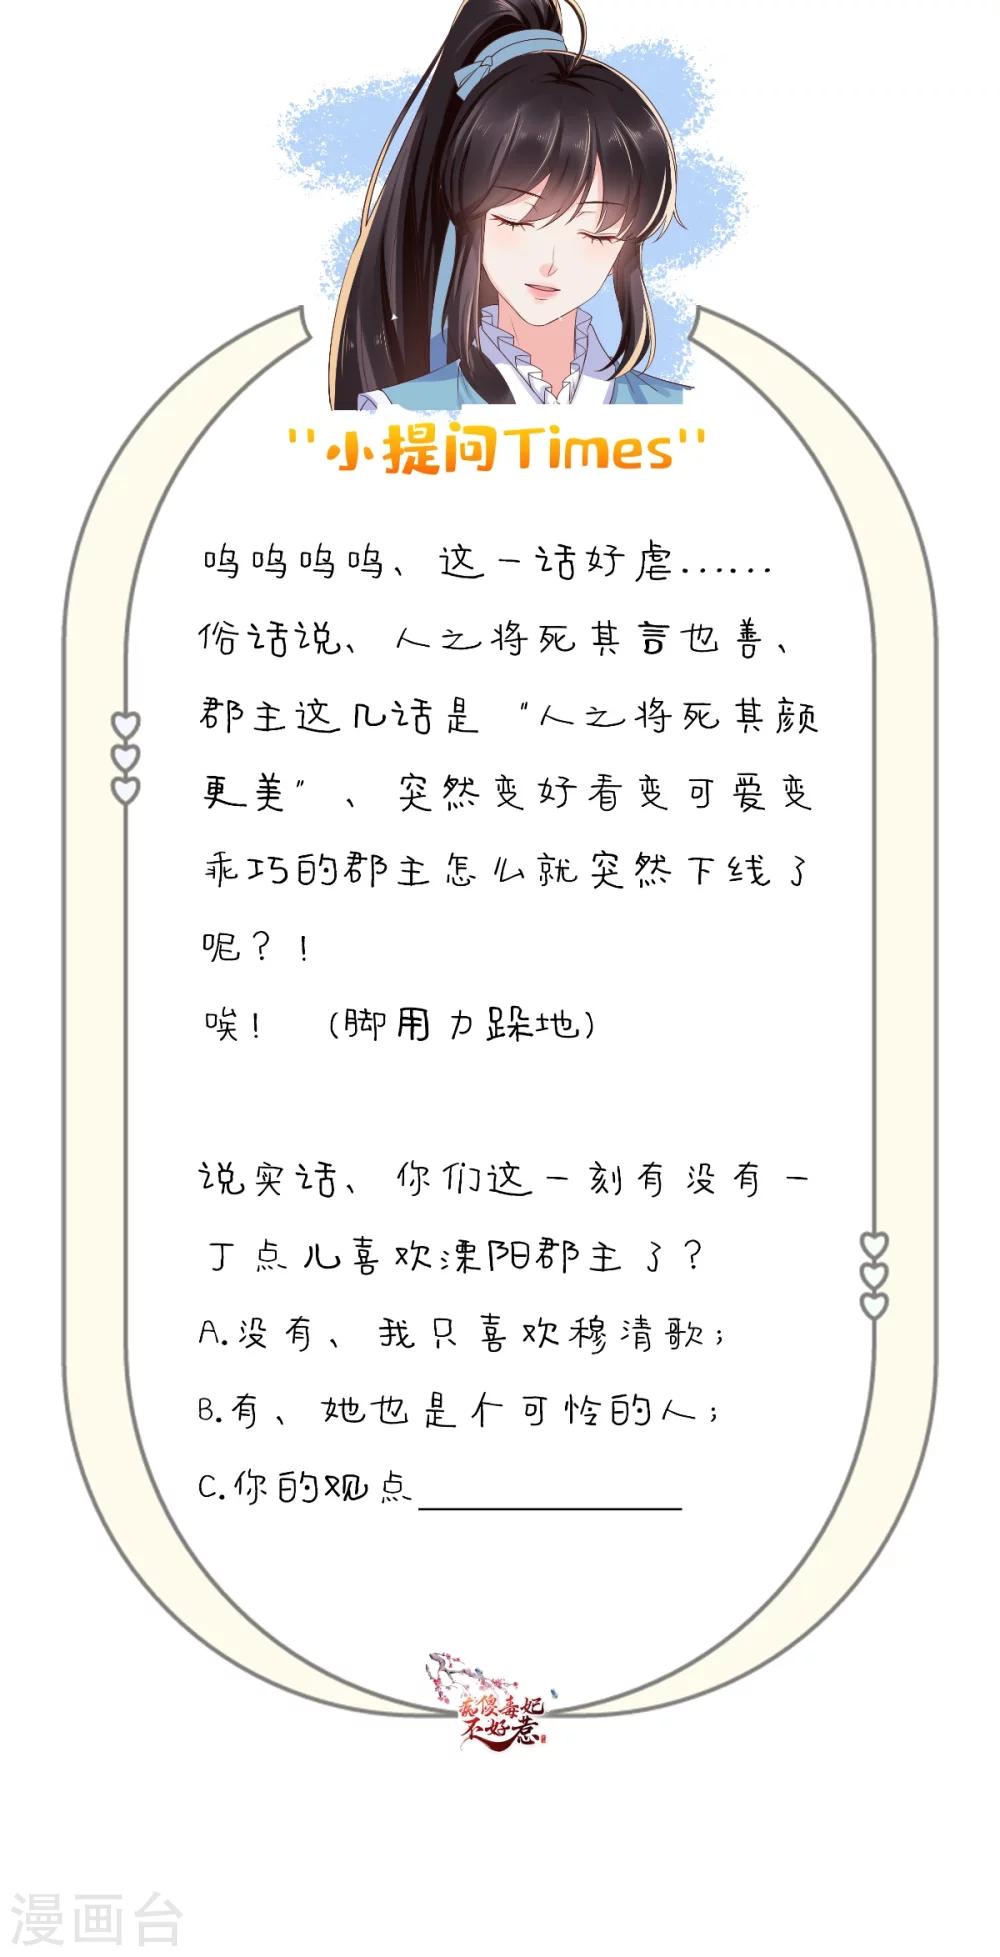 "小提问Times"
呜呜呜呜、这一话好虐……
俗话说、人之将死其言也善、
郡主这几话是“人之将死其颜
更美”、突然变好看变可爱变
乖巧的郡主怎么就突然下线了
呢？！
唉！ （脚用力跺地）
说实话、你们这一刻有没有一
丁点儿喜欢溧阳郡主了？
A.没有、我只喜欢穆清歌；
B.有、她也是个可怜的人；
C.你的观点
痴傻毒妃
不好惹
漫画台